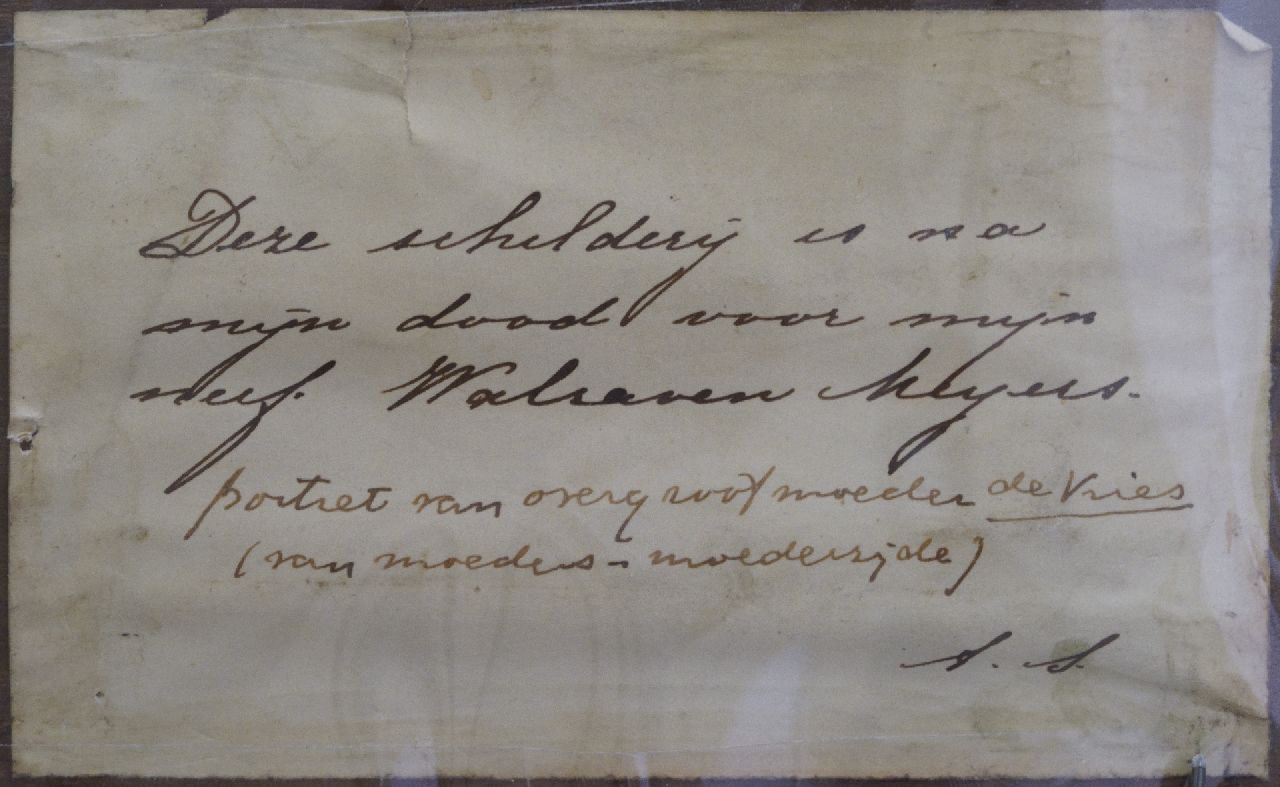 Deze schilderij is na
mijn dood voor mijn
neef. Walraven Meyers.
portret van overgrootmoeder de Vries
(van moeders-moederzijde)
A. S.